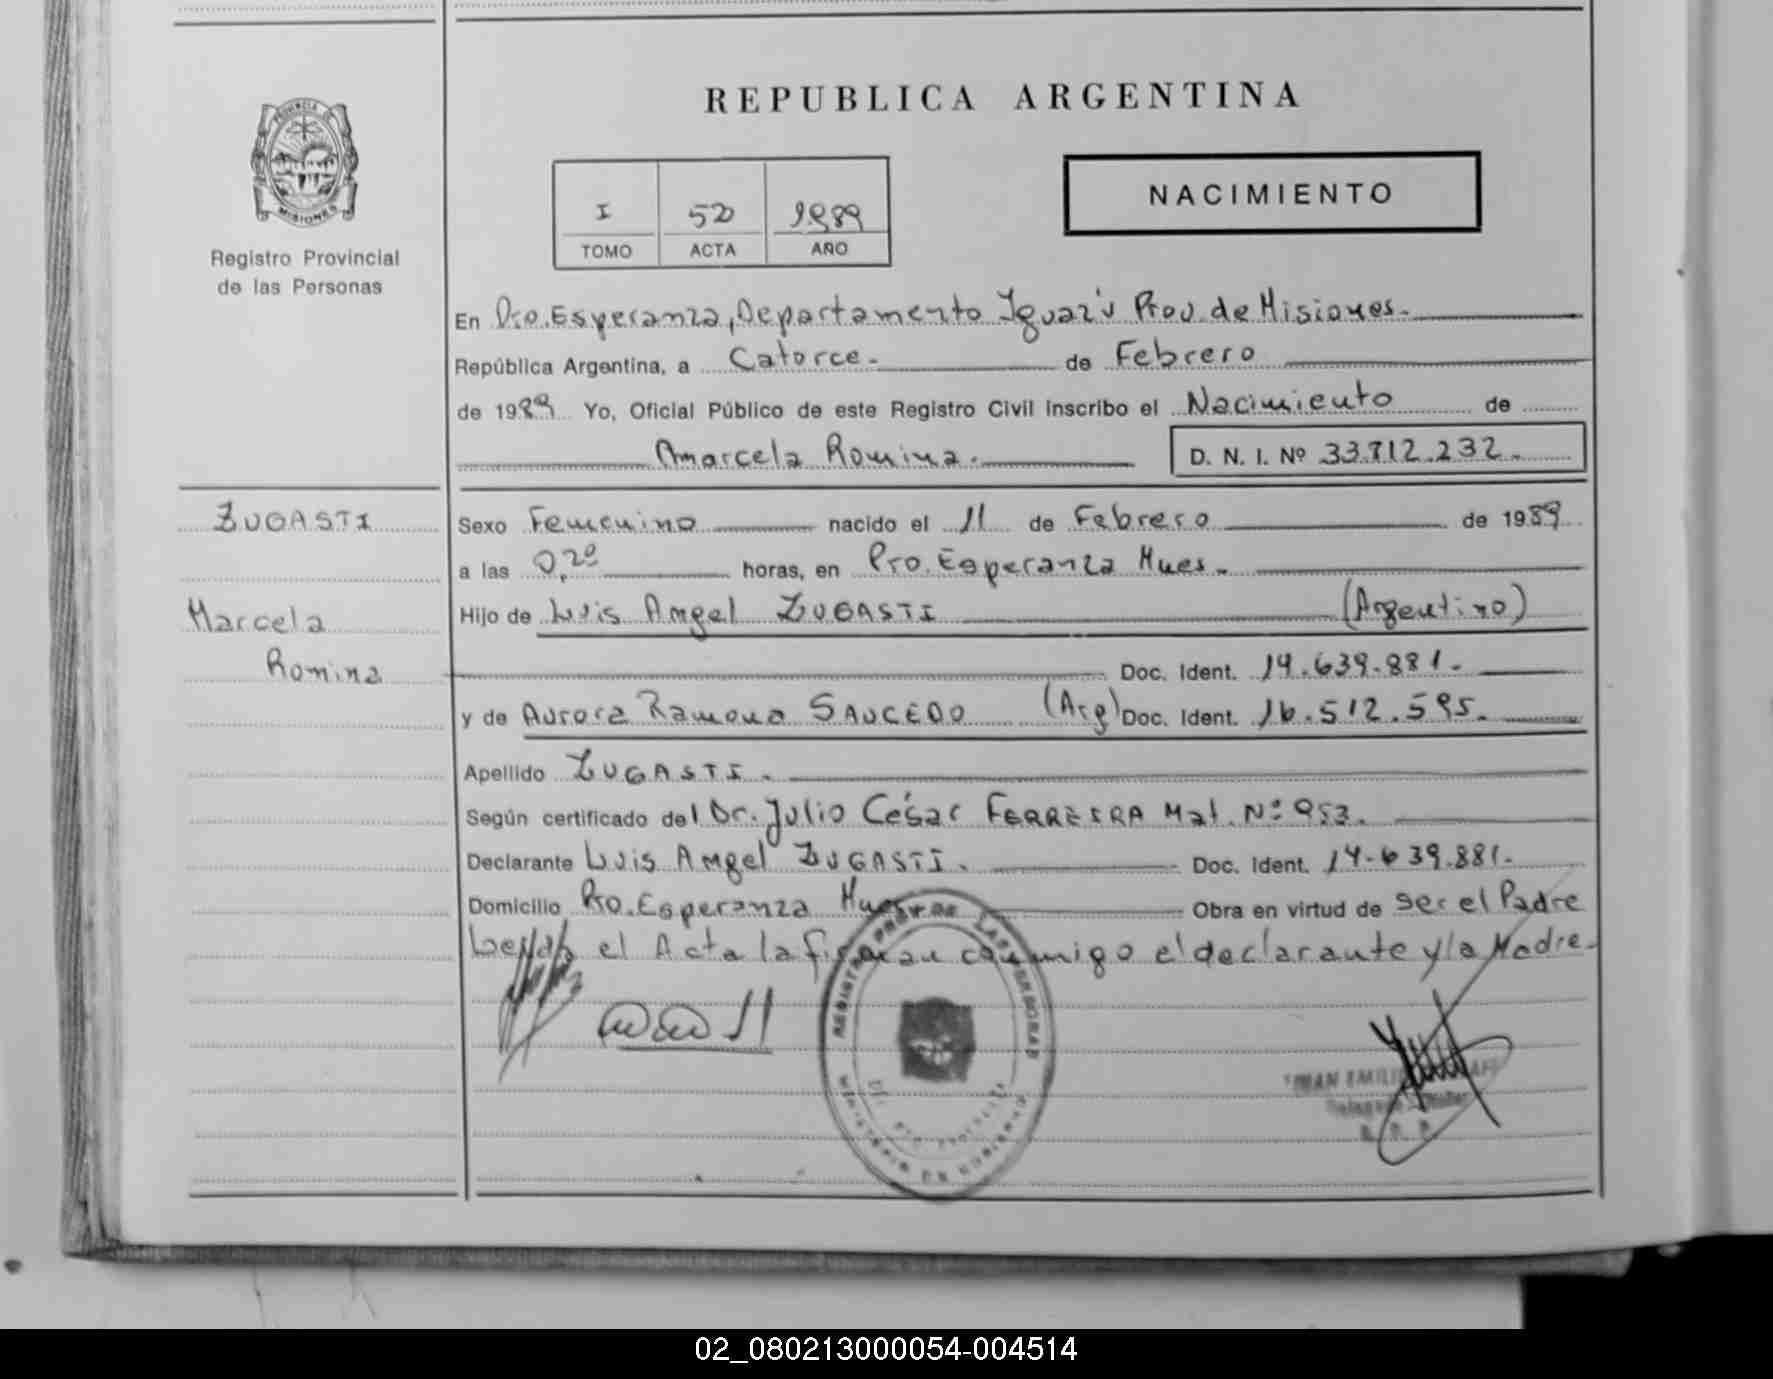 REPUBLICA ARGENTINA
PROVINCIA DE
MISIONES
Registro Provincial
de las Personas
I 52 1989
TOMO ACTA AÑO
NACIMIENTO
En Pto. Esperanza, Departamento Iguazú Prov. de Misiones.
República Argentina, a Catorce. de Febrero
de 1989 Yo, Oficial Público de este Registro Civil inscribo el Nacimiento de
Marcela Romina. D. N. I. Nº 33.712.232.
ZUGASTI
Marcela
Romina
Sexo Femenino nacido el 11 de Febrero de 1989
a las 0,20 horas, en Pto. Esperanza Mnes.
Hijo de Luis Angel ZUGASTI (Argentino)
Doc. Ident. 14.639.881.
y de Aurora Ramona SAUCEDO (Arg) Doc. Ident. 16.512.595.
Apellido ZUGASTI.
Según certificado del Dr. Julio César FERREIRA Mat. Nº 953.
Declarante Luis Angel ZUGASTI. Doc. Ident. 14.639.881.
Domicilio Pto. Esperanza Mnes. Obra en virtud de ser el Padre
Leída el Acta la firman conmigo el declarante y la Madre.
REGISTRO PROV. DE LAS PERSONAS
MINISTERIO DE GOBIERNO
02_080213000054-004514